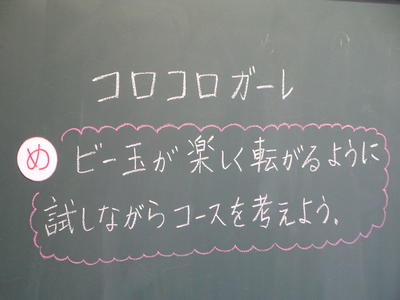 コロコロガーレ
め ビー玉が楽しく転がるように
試しながらコースを考えよう。